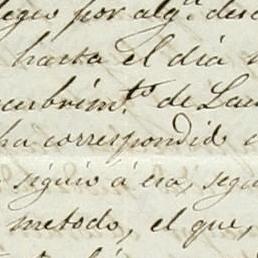 legio por algᵃ. des
hasta el dia
cubrimᵗᵒ. de Lau
ha correspondido
siguio á esa, segu
metodo, el que,